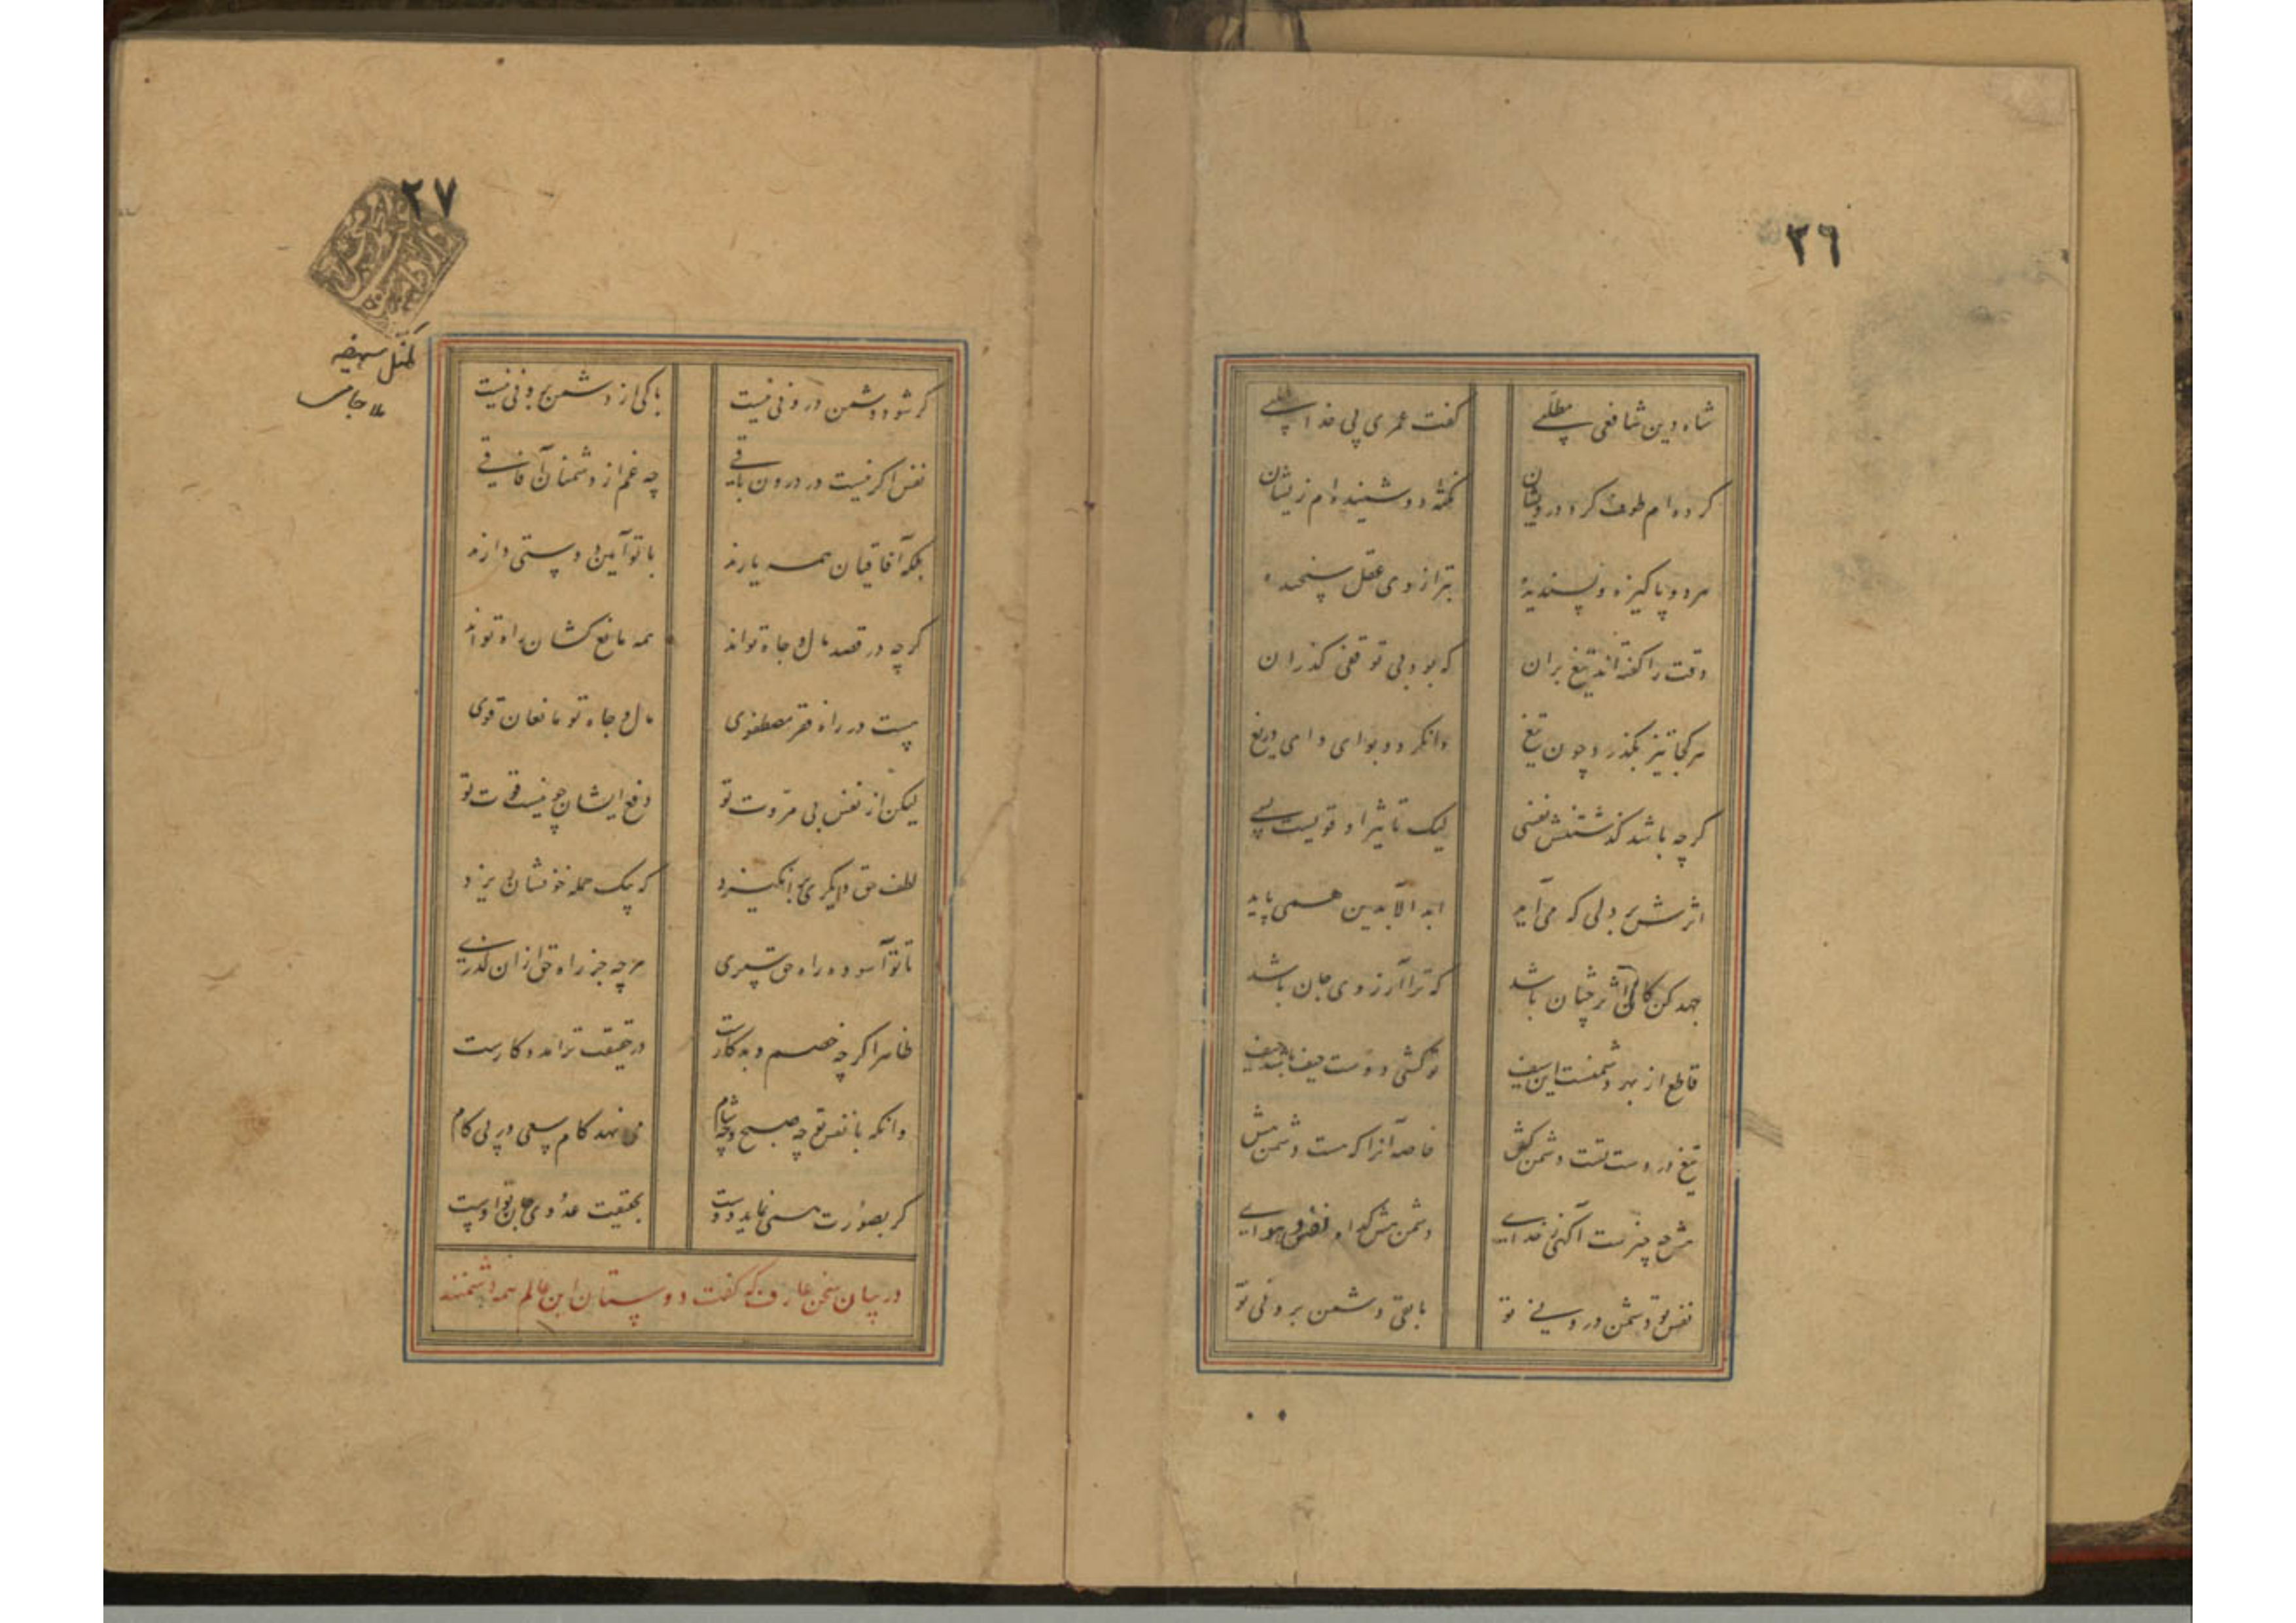 ٢٦
شاه دین شافعی مطلبی گفت عمری پی خدا طلبی
کرده‌ام طوف کرد درویشان نکته دو شنیده‌ام زیشان
هر دو پاکیزه و پسندیده بترازوی عقل سنجیده
وقت را گفته‌اند تیغ بران که بود بی توقفی گذران
هر کجا تیز بگذرد چون تیغ وانگردد بوای وای دریغ
گرچه باشد گذشتنش نفسی لیک تاثیر او قویست بسی
اثرش بر دلی که می‌آید ابد الآبدین همی پاید
جهد کن کان اثر چنان باشد که ترا آرزوی جان باشد
قاطع از بهر دشمنست این سیف تو کشی دوست حیف باشد حیف
تیغ در دست تست دشمن کش خاصه آنرا که هست دشمن‌تر
دشمن کدام نفس و هوای
نفس تو دشمن درونی تو باقی دشمن برونی تو
٢٧
گر شود دشمن درونی نیست باکی از دشمن برونی نیست
نفس اگر نیست در درون باقی چه غم از دشمنان آفاقی
بلکه آفاقیان همه یارند با تو آیین دوستی دارند
گرچه در قصد مال و جاه تواند همه مانع کشان راه تواند
هست در راه فقر مصطفوی مال و جاه تو مانعان قوی
لیکن از نفس بی مروت تو دفع ایشان چو نیست قوت تو
لطف حق دیگری برانگیزد که بیک حمله خونشان ریزد
تا تو آسوده راه حق سپری هرچه جز راه حق ازان گذری
ظاهرا گرچه خصم و بدکارست در حقیقت ترا مددکارست
وانکه با نفس تو چه صبح و چه شام می نهد گام سعی در پی کام
گر بصورت همی نماید دوست بحقیقت عدوی جان تو اوست
در بیان سخن عارف که گفت دوستان این عالم همه دشمنند